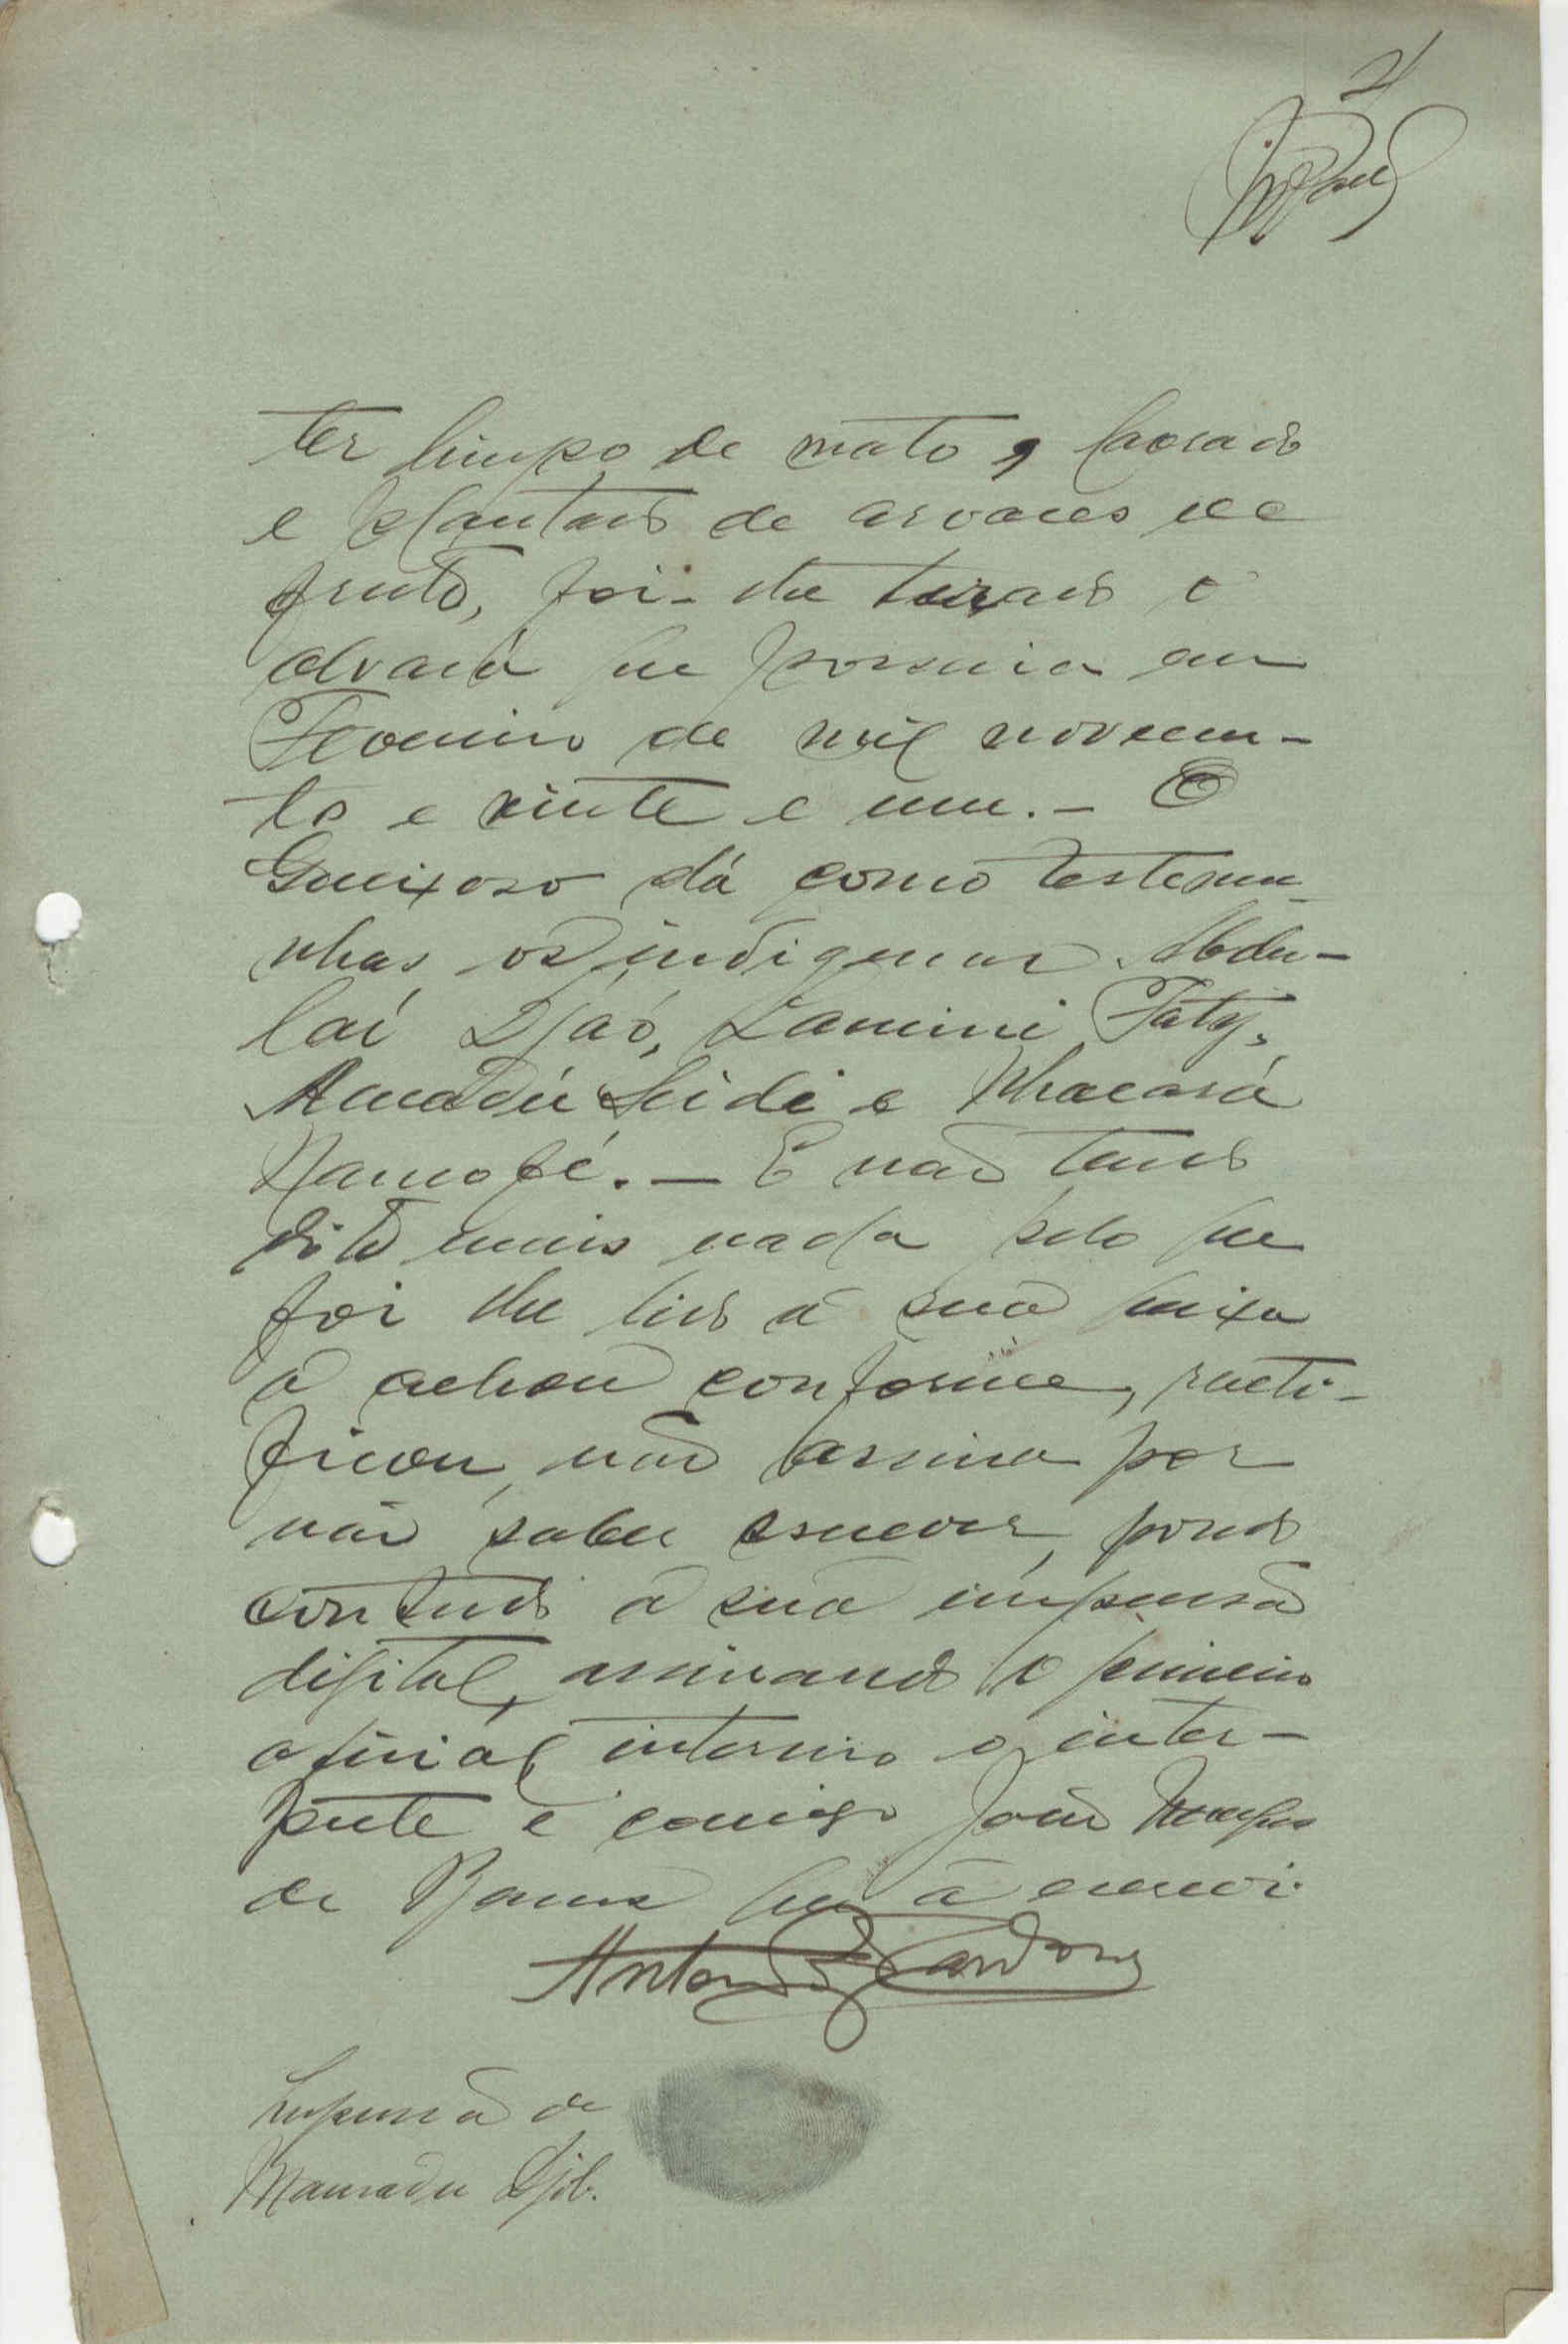 ter limpo de mato, lavrado
e plantado de arvores de
fruto, foi-lhe tirado o
alvará que possuia em
Fevereiro de mil novecen-
to e vinte e um. - O
Queixoso dá como testemu-
nhas os indigenas Abdu-
lai Djaó, Lamini Faty,
Amadú Seidi e
. - E não tendo
dito mais nada pelo que
foi lhe lido a sua queixa
a achou conforme, racti-
ficou, não assina por
não saber escrever, pondo
contudo a sua impressão
digital, assinando o primeiro
oficial interino o inter-
prete e comigo João
de Barros que a escrevi.
Antonio Cardoso
Impressão de
Mamadu